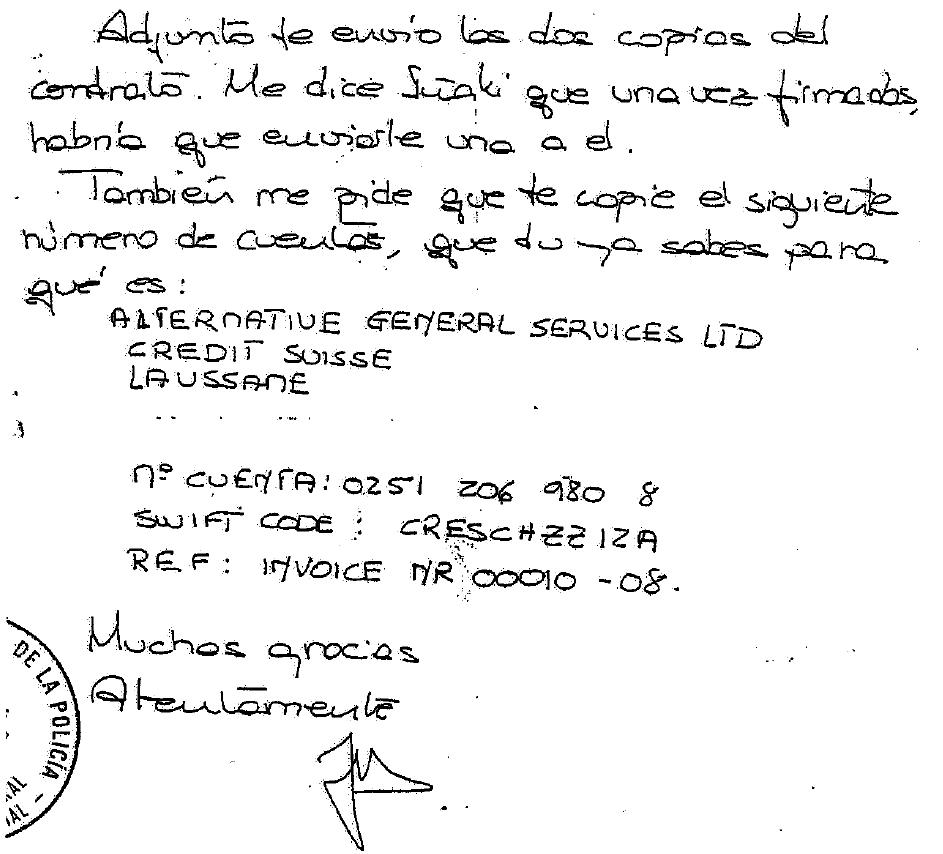 Adjunto te envío las dos copias del
contrato. Me dice Iñaki que una vez firmadas,
habría que enviarle una a el.
También me pide que te copie el siguiente
número de cuentas, que tu ya sabes para
qué es:
ALTERNATIVE GENERAL SERVICES LTD
CREDIT SUISSE
LAUSSANE
nº CUENTA: 0251 206 980 8
SWIFT CODE: CRESCHZZ12A
REF: INVOICE NR 00010-08.
Muchas gracias
Atentamente
DE LA POLICÍA -